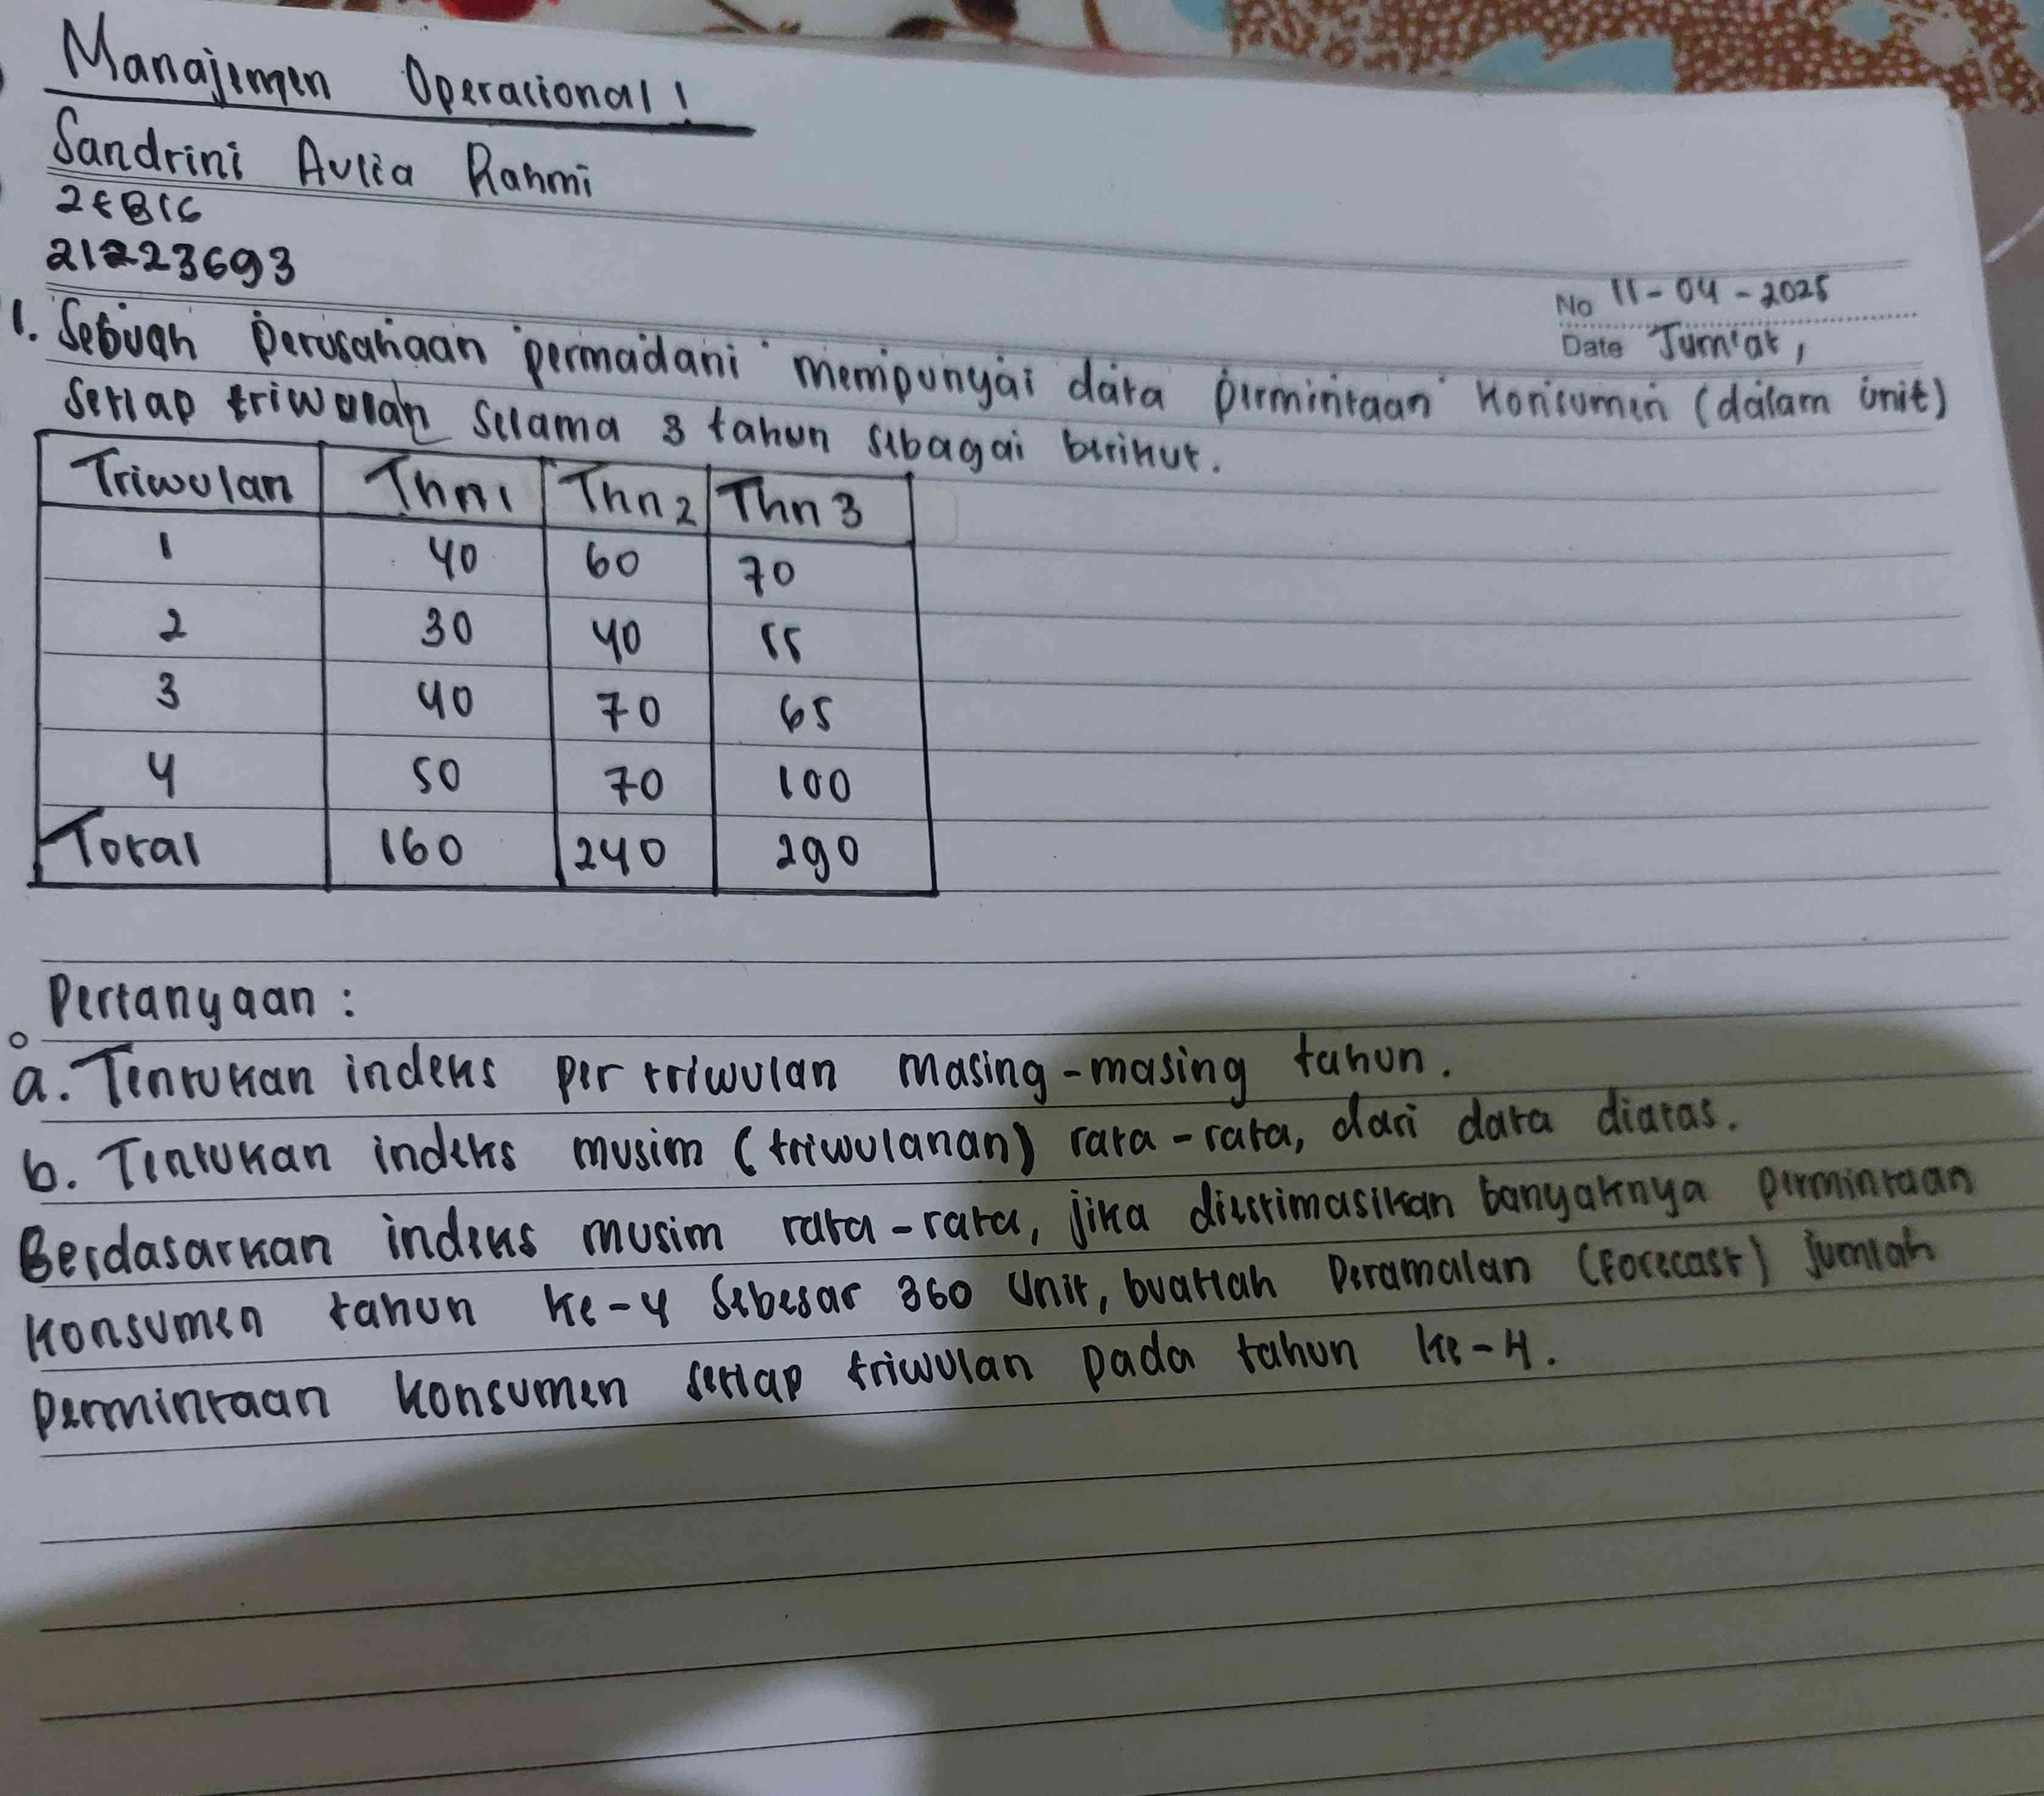 Manajemen Operasional !
Sandrini Aulia Rahmi
2EB16
21223693
No 11-04-2025
Date Jum'at,
1. Sebuah perusahaan "permadani" mempunyai data permintaan konsumen (dalam unit)
setiap triwulan selama 3 tahun sebagai berikut.
Triwulan Thn 1 Thn 2 Thn 3
1 40 60 70
2 30 40 55
3 40 70 65
4 50 70 100
Total 160 240 290
Pertanyaan :
a. Tentukan indeks per triwulan masing-masing tahun.
b. Tentukan indeks musim (triwulanan) rata-rata, dari data diatas.
Berdasarkan indeks musim rata-rata, jika diestimasikan banyaknya permintaan
konsumen tahun ke-4 sebesar 360 unit, buatlah Peramalan (Forecast) jumlah
permintaan konsumen setiap triwulan pada tahun ke-4.